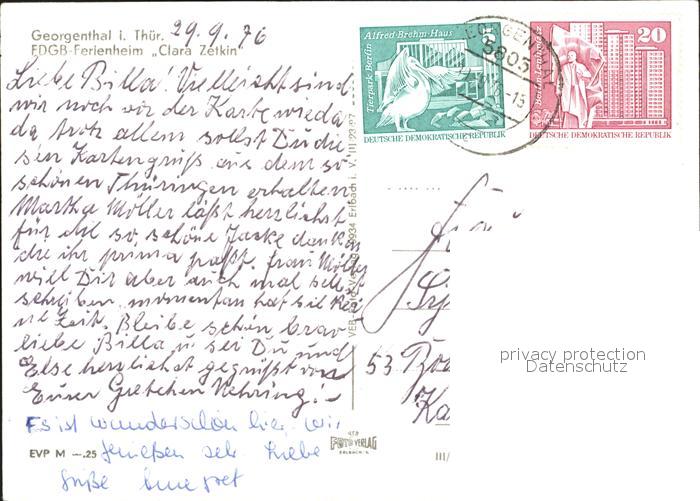 Georgenthal i. Thür. 29.9.76
FDGB-Ferienheim „Clara Zetkin"
Liebe Billa! Vielleicht sind
wir noch vor der Karte wieder
da trotz allem sollst Du die
sen Kartengruß aus dem so
schönen Thüringen erhalten
Martha Möller läßt herzlichst
für die so schöne Jacke danken
die ihr prima paßt. Frau Möller
will Dir aber auch mal selbst
schreiben, momentan hat sie kei
ne Zeit. Bleibe schön brav
liebe Billa u sei Du und
Else herzlichst gegrüßt von
Eurer Gretchen Nehring!
Es ist wunderschön hier, wir
genießen sehr. Liebe
Grüße
EVP M —.25
VEB Foto-Verlag 9934 Erlbach i. V.
Tierpark Berlin
Alfred-Brehm-Haus
DEUTSCHE DEMOKRATISCHE REPUBLIK
5805
20
Berlin-Leninplatz
DEUTSCHE DEMOKRATISCHE REPUBLIK
53
VEB
FOTO VERLAG
ERLBACH V.
III/
privacy protection
Datenschutz